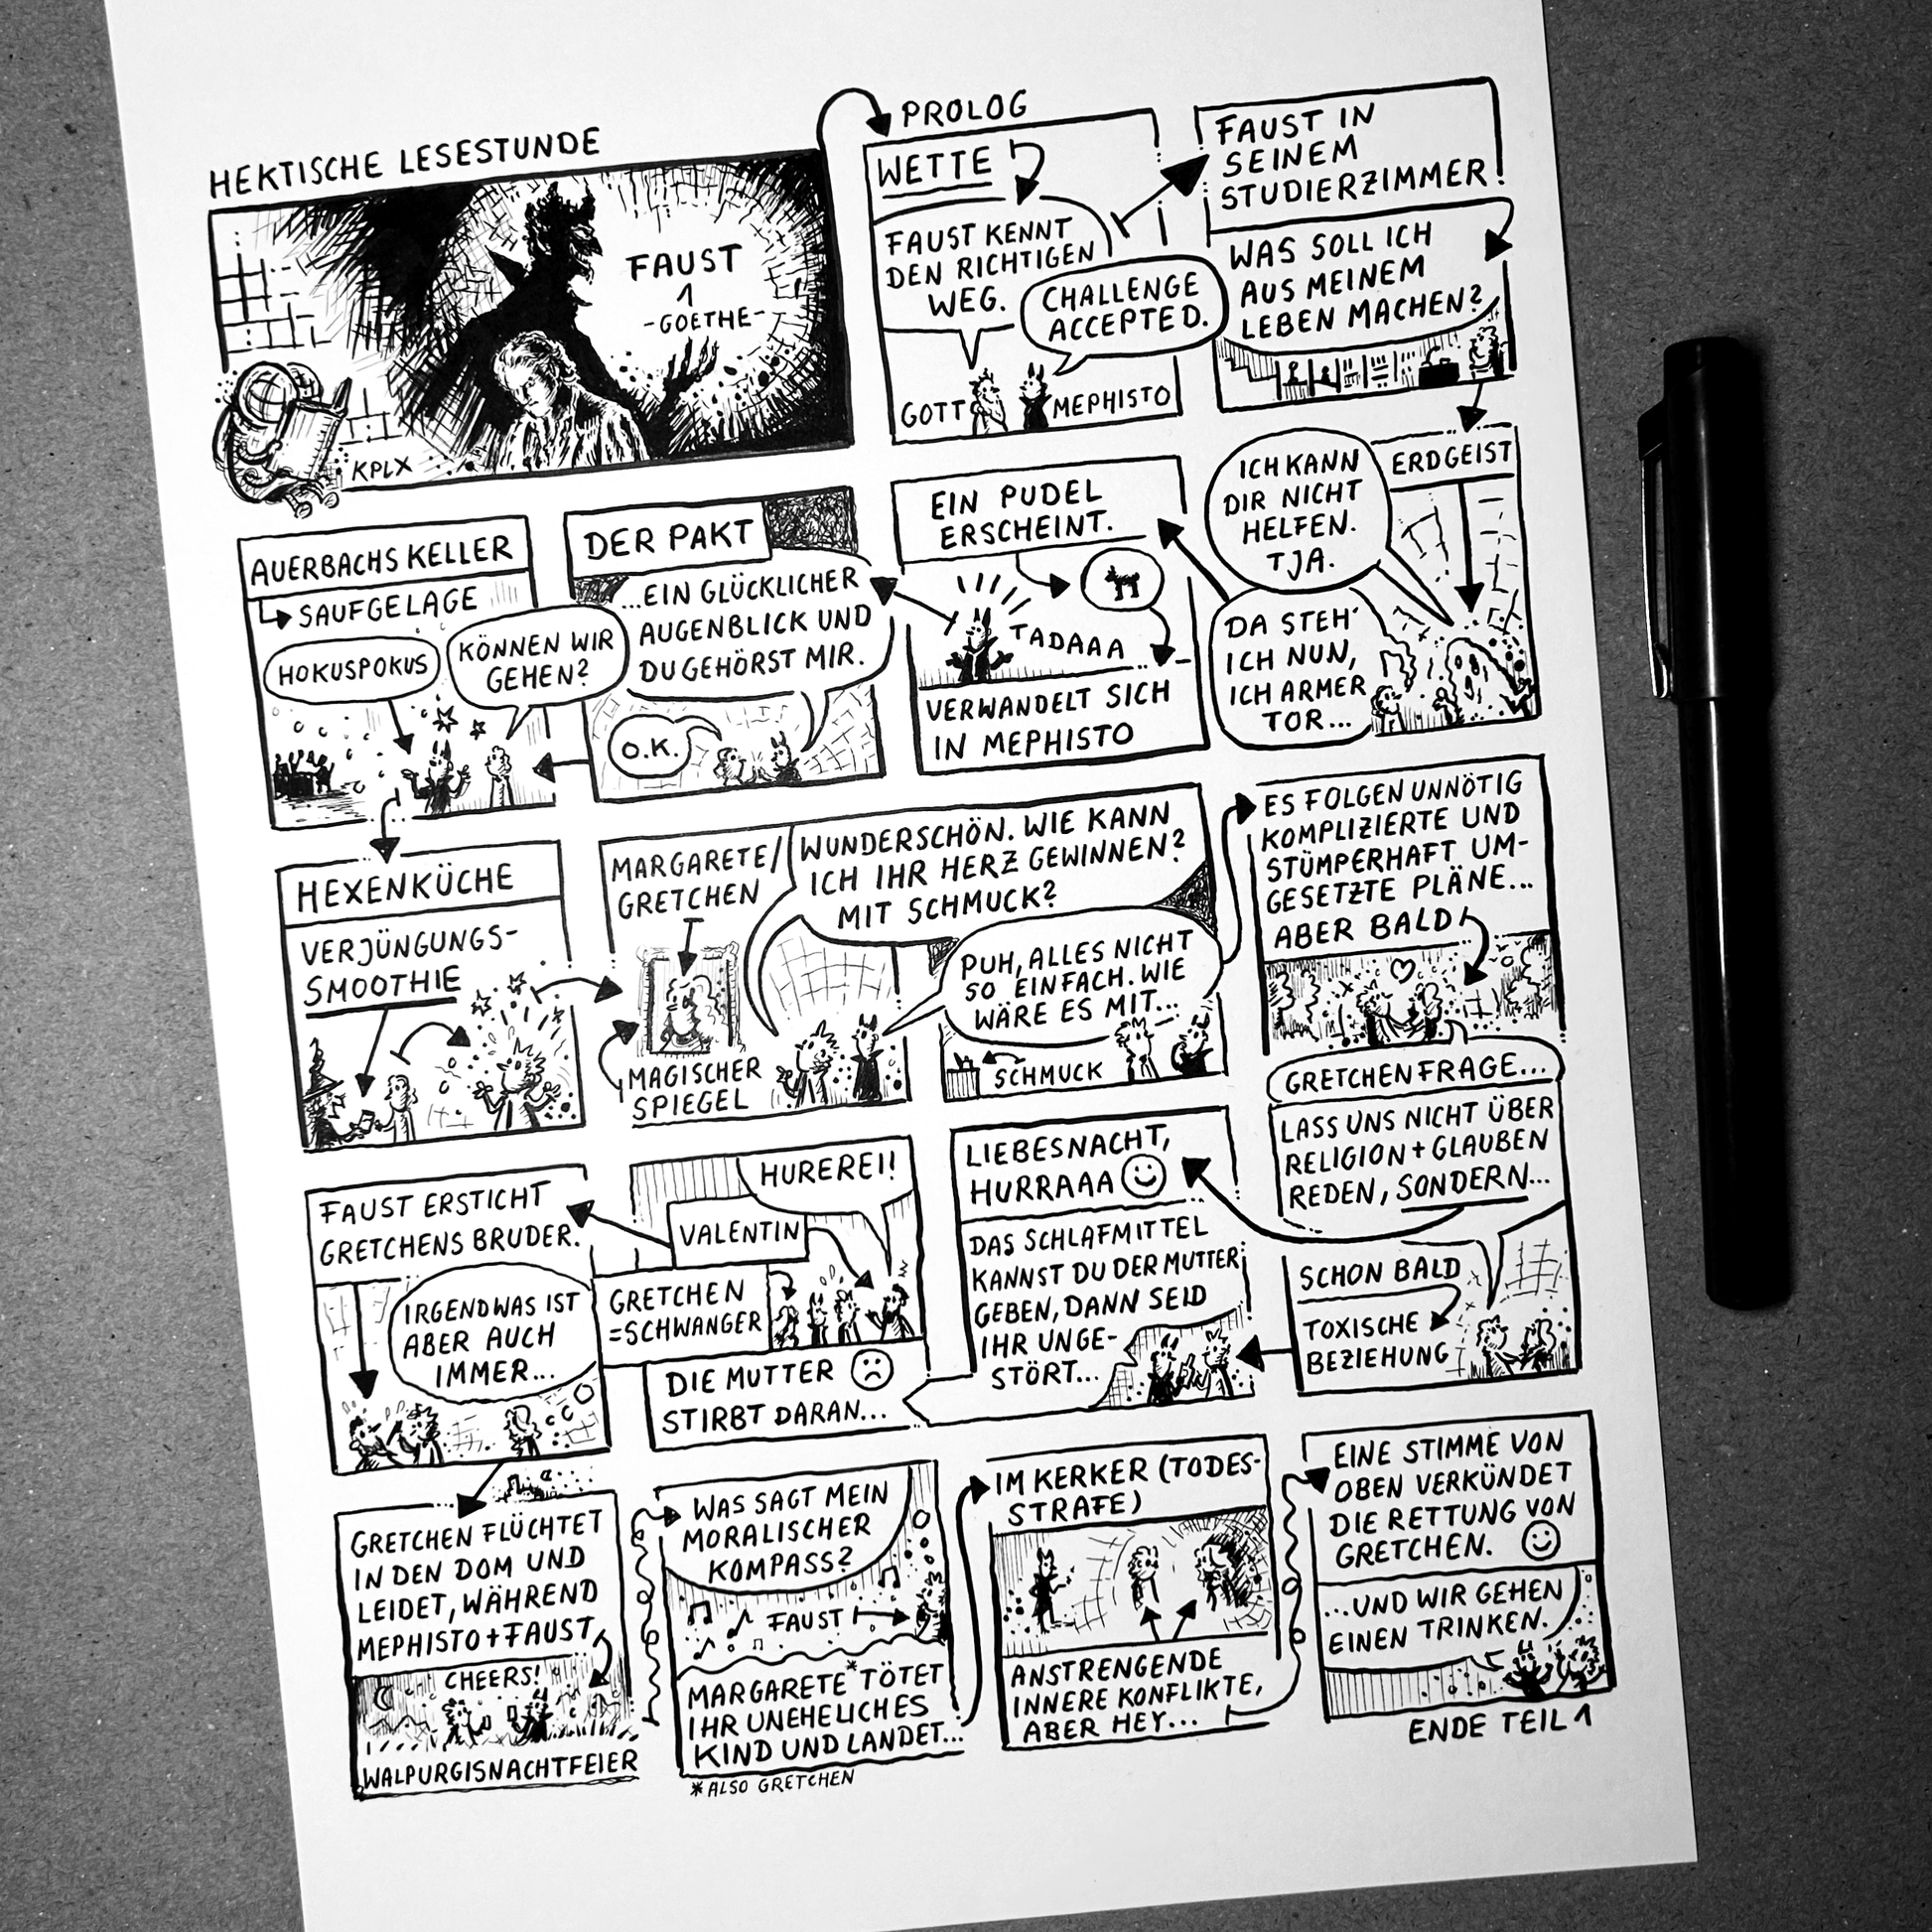 HEKTISCHE LESESTUNDE
FAUST
1
-GOETHE-
KPLX
PROLOG
WETTE
FAUST KENNT
DEN RICHTIGEN
WEG.
CHALLENGE
ACCEPTED.
GOTT
MEPHISTO
FAUST IN
SEINEM
STUDIERZIMMER!
WAS SOLL ICH
AUS MEINEM
LEBEN MACHEN?
ERDGEIST
ICH KANN
DIR NICHT
HELFEN.
TJA.
DA STEH'
ICH NUN,
ICH ARMER
TOR...
EIN PUDEL
ERSCHEINT.
TADAAA
VERWANDELT SICH
IN MEPHISTO
DER PAKT
...EIN GLÜCKLICHER
AUGENBLICK UND
DU GEHÖRST MIR.
O.K.
AUERBACHS KELLER
SAUFGELAGE
HOKUSPOKUS
KÖNNEN WIR
GEHEN?
HEXENKÜCHE
VERJÜNGUNGS-
SMOOTHIE
MARGARETE/
GRETCHEN
MAGISCHER
SPIEGEL
WUNDERSCHÖN. WIE KANN
ICH IHR HERZ GEWINNEN?
MIT SCHMUCK?
PUH, ALLES NICHT
SO EINFACH. WIE
WÄRE ES MIT...
SCHMUCK
ES FOLGEN UNNÖTIG
KOMPLIZIERTE UND
STÜMPERHAFT UM-
GESETZTE PLÄNE...
ABER BALD
GRETCHENFRAGE...
LASS UNS NICHT ÜBER
RELIGION + GLAUBEN
REDEN, SONDERN...
SCHON BALD
TOXISCHE
BEZIEHUNG
LIEBESNACHT,
HURRAAA
DAS SCHLAFMITTEL
KANNST DU DER MUTTER
GEBEN, DANN SEID
IHR UNGE-
STÖRT...
DIE MUTTER
STIRBT DARAN...
HUREREI!
VALENTIN
GRETCHEN
=SCHWANGER
FAUST ERSTICHT
GRETCHENS BRUDER.
IRGENDWAS IST
ABER AUCH
IMMER...
GRETCHEN FLÜCHTET
IN DEN DOM UND
LEIDET, WÄHREND
MEPHISTO+FAUST
CHEERS!
WALPURGISNACHTFEIER
WAS SAGT MEIN
MORALISCHER
KOMPASS?
FAUST
MARGARETE* TÖTET
IHR UNEHELICHES
KIND UND LANDET...
*ALSO GRETCHEN
IM KERKER (TODES-
STRAFE)
ANSTRENGENDE
INNERE KONFLIKTE,
ABER HEY...
EINE STIMME VON
OBEN VERKÜNDET
DIE RETTUNG VON
GRETCHEN.
...UND WIR GEHEN
EINEN TRINKEN.
ENDE TEIL 1